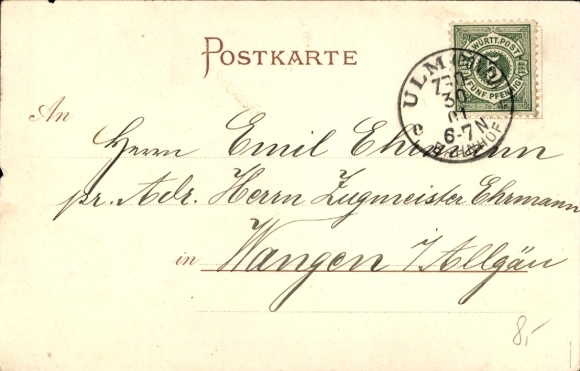 POSTKARTE
WÜRTT. POST
FÜNF PFENNIG
ULM
30
01
6-7 N
BAHNHOF
An
Herrn Emil Ehrmann
pr. Adr. Herrn Zugmeister Ehrmann
in Wangen i/Allgäu
8,-